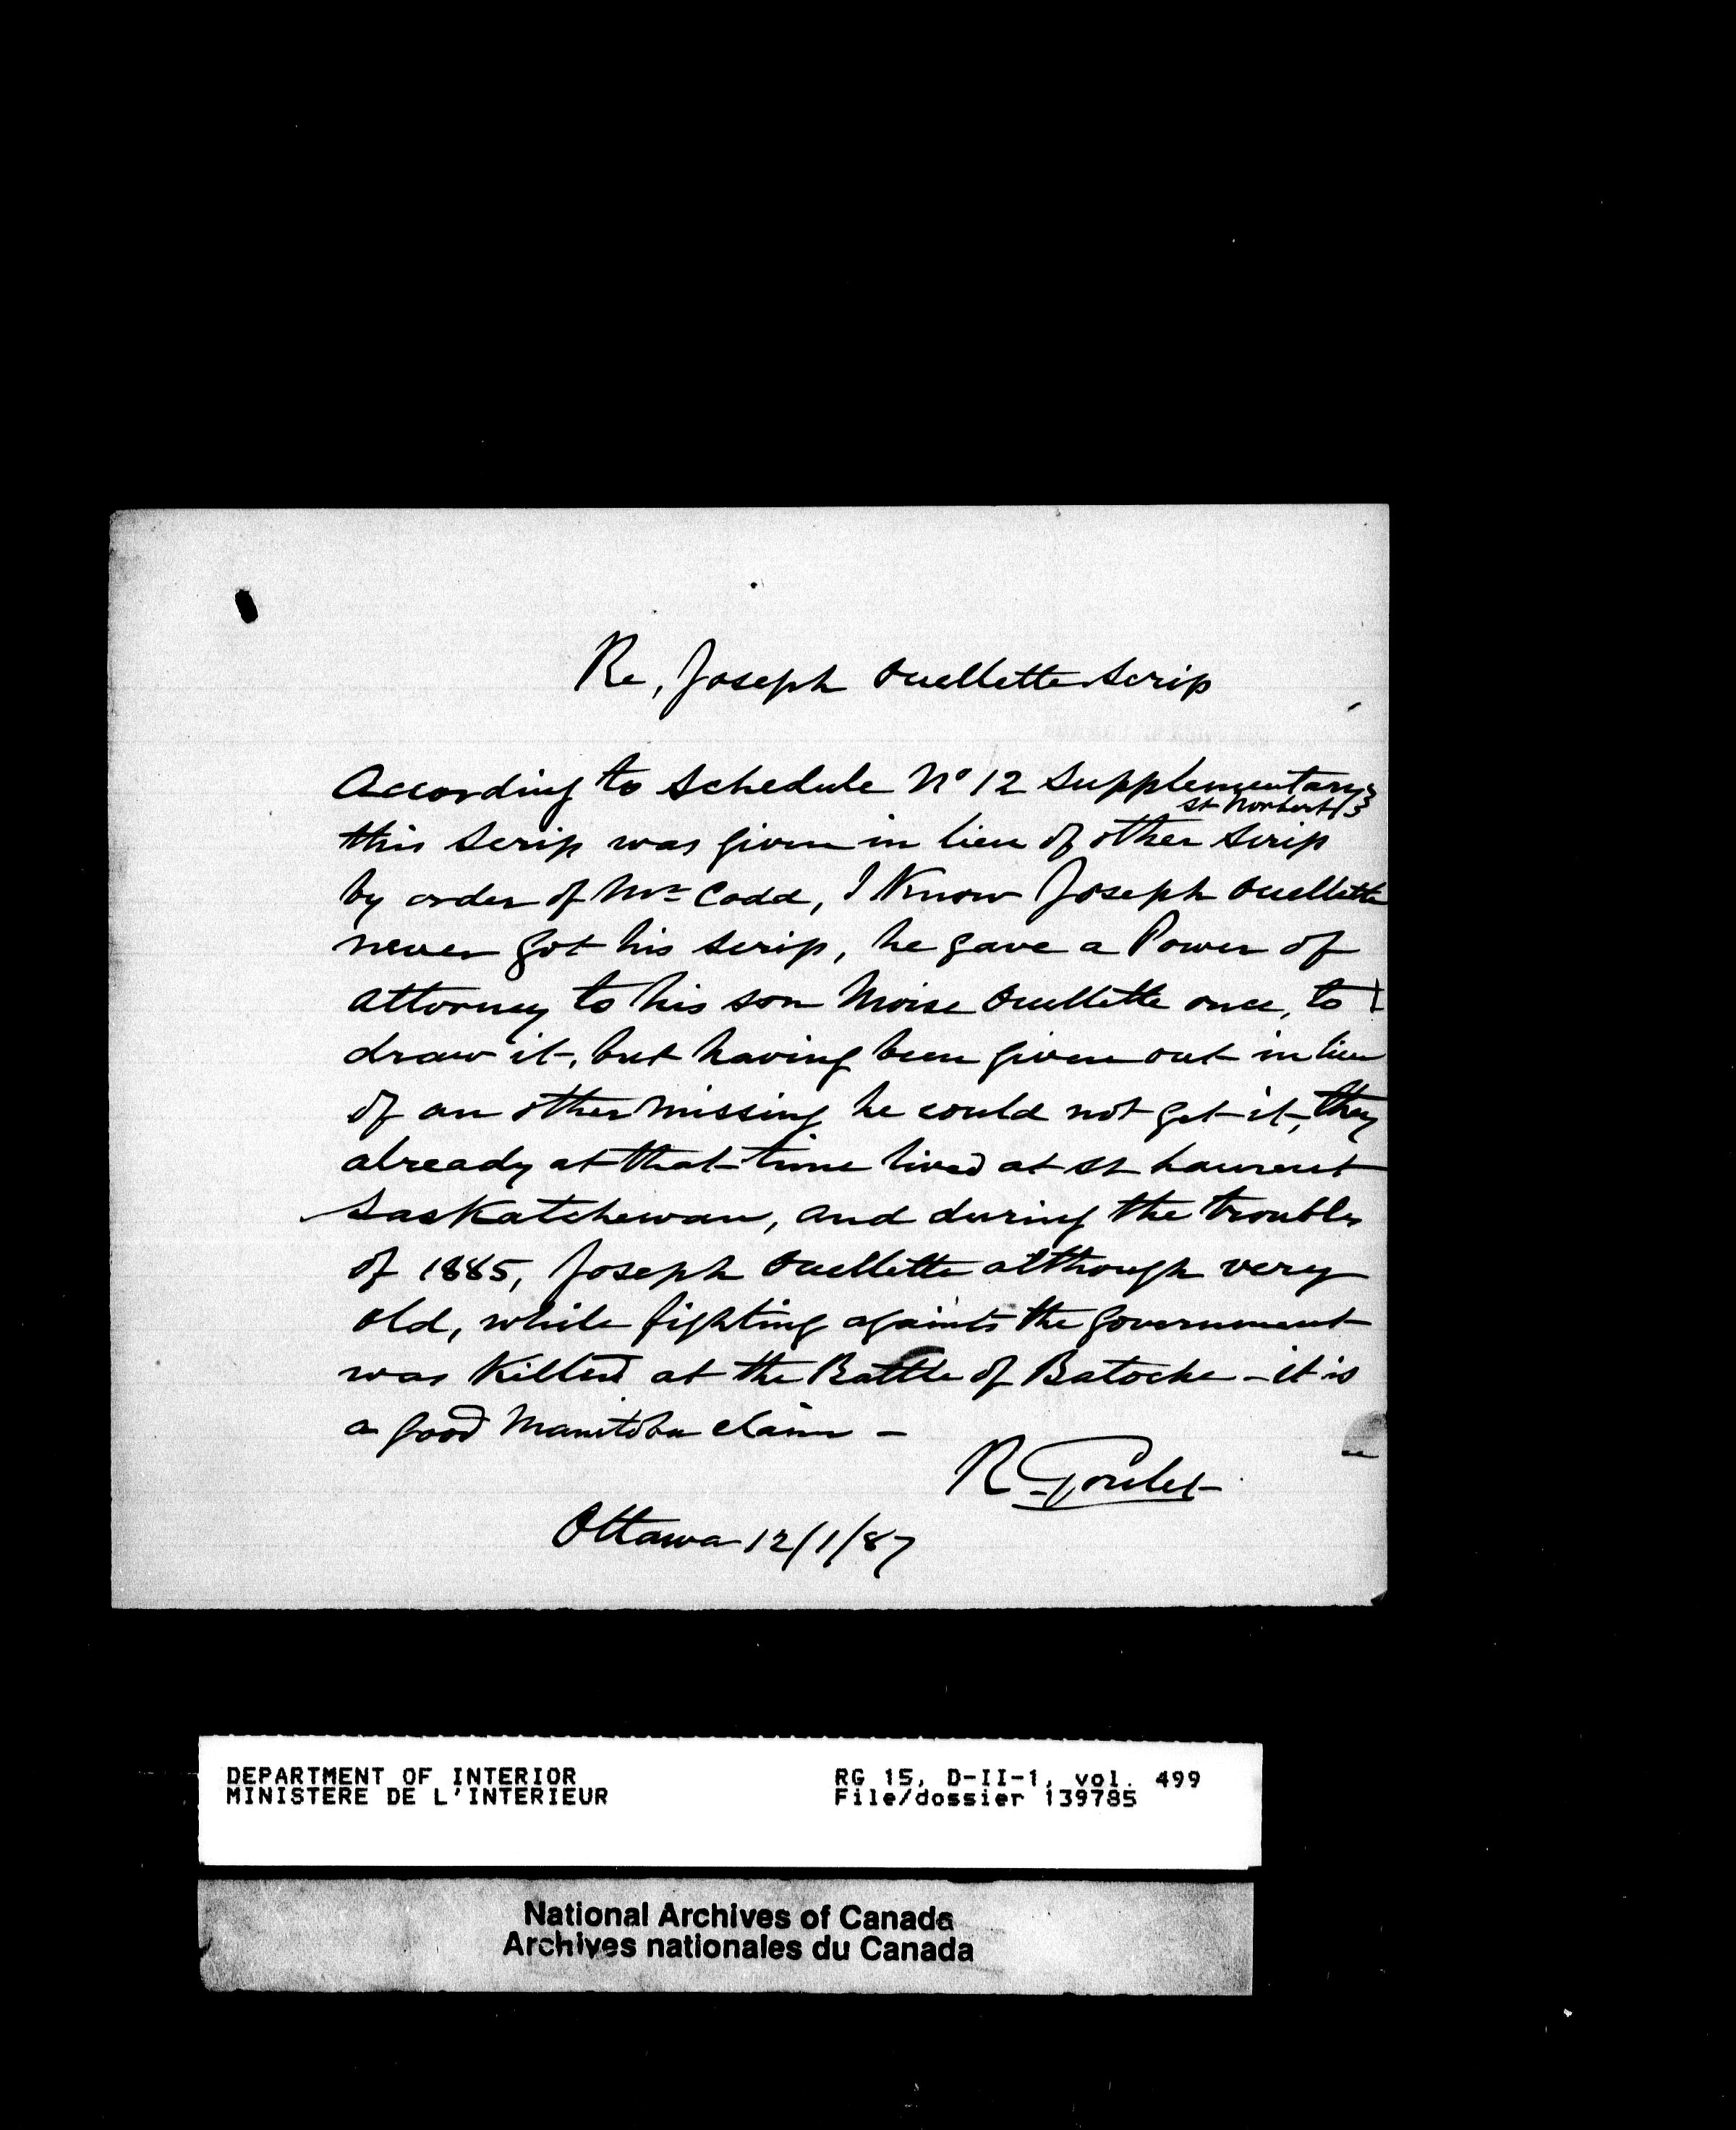 Re, Joseph Ouellette Scrip
According to Schedule No 12 Supplementary
St Norbert
this Scrip was given in lieu of other Scrip
by order of Mr Codd, I Know Joseph Ouellette
never got his Scrip, he gave a Power of
attorney to his son Moise Ouellette once, to
draw it, but having been given out in lieu
of an other missing he could not get it, they
already at that time lived at St Laurent
Saskatchewan, and during the troubles
of 1885, Joseph Ouellette although very
old, while fighting againts the government
was Killed at the Battle of Batoche - it is
a good Manitoba claim -
R Goulet
Ottawa 12/1/87
DEPARTMENT OF INTERIOR
MINISTERE DE L'INTERIEUR
RG 15, D-II-1, vol. 499
File/dossier 139785
National Archives of Canada
Archives nationales du Canada